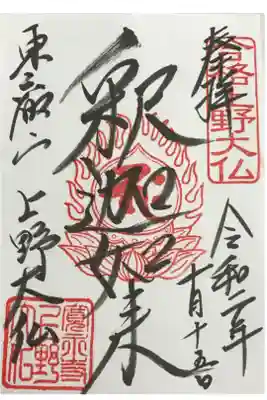 合格上野大仏
奉拝
令和二年
十月十五日
釈迦如来
東叡山 上野大仏
寛永寺
上野大仏